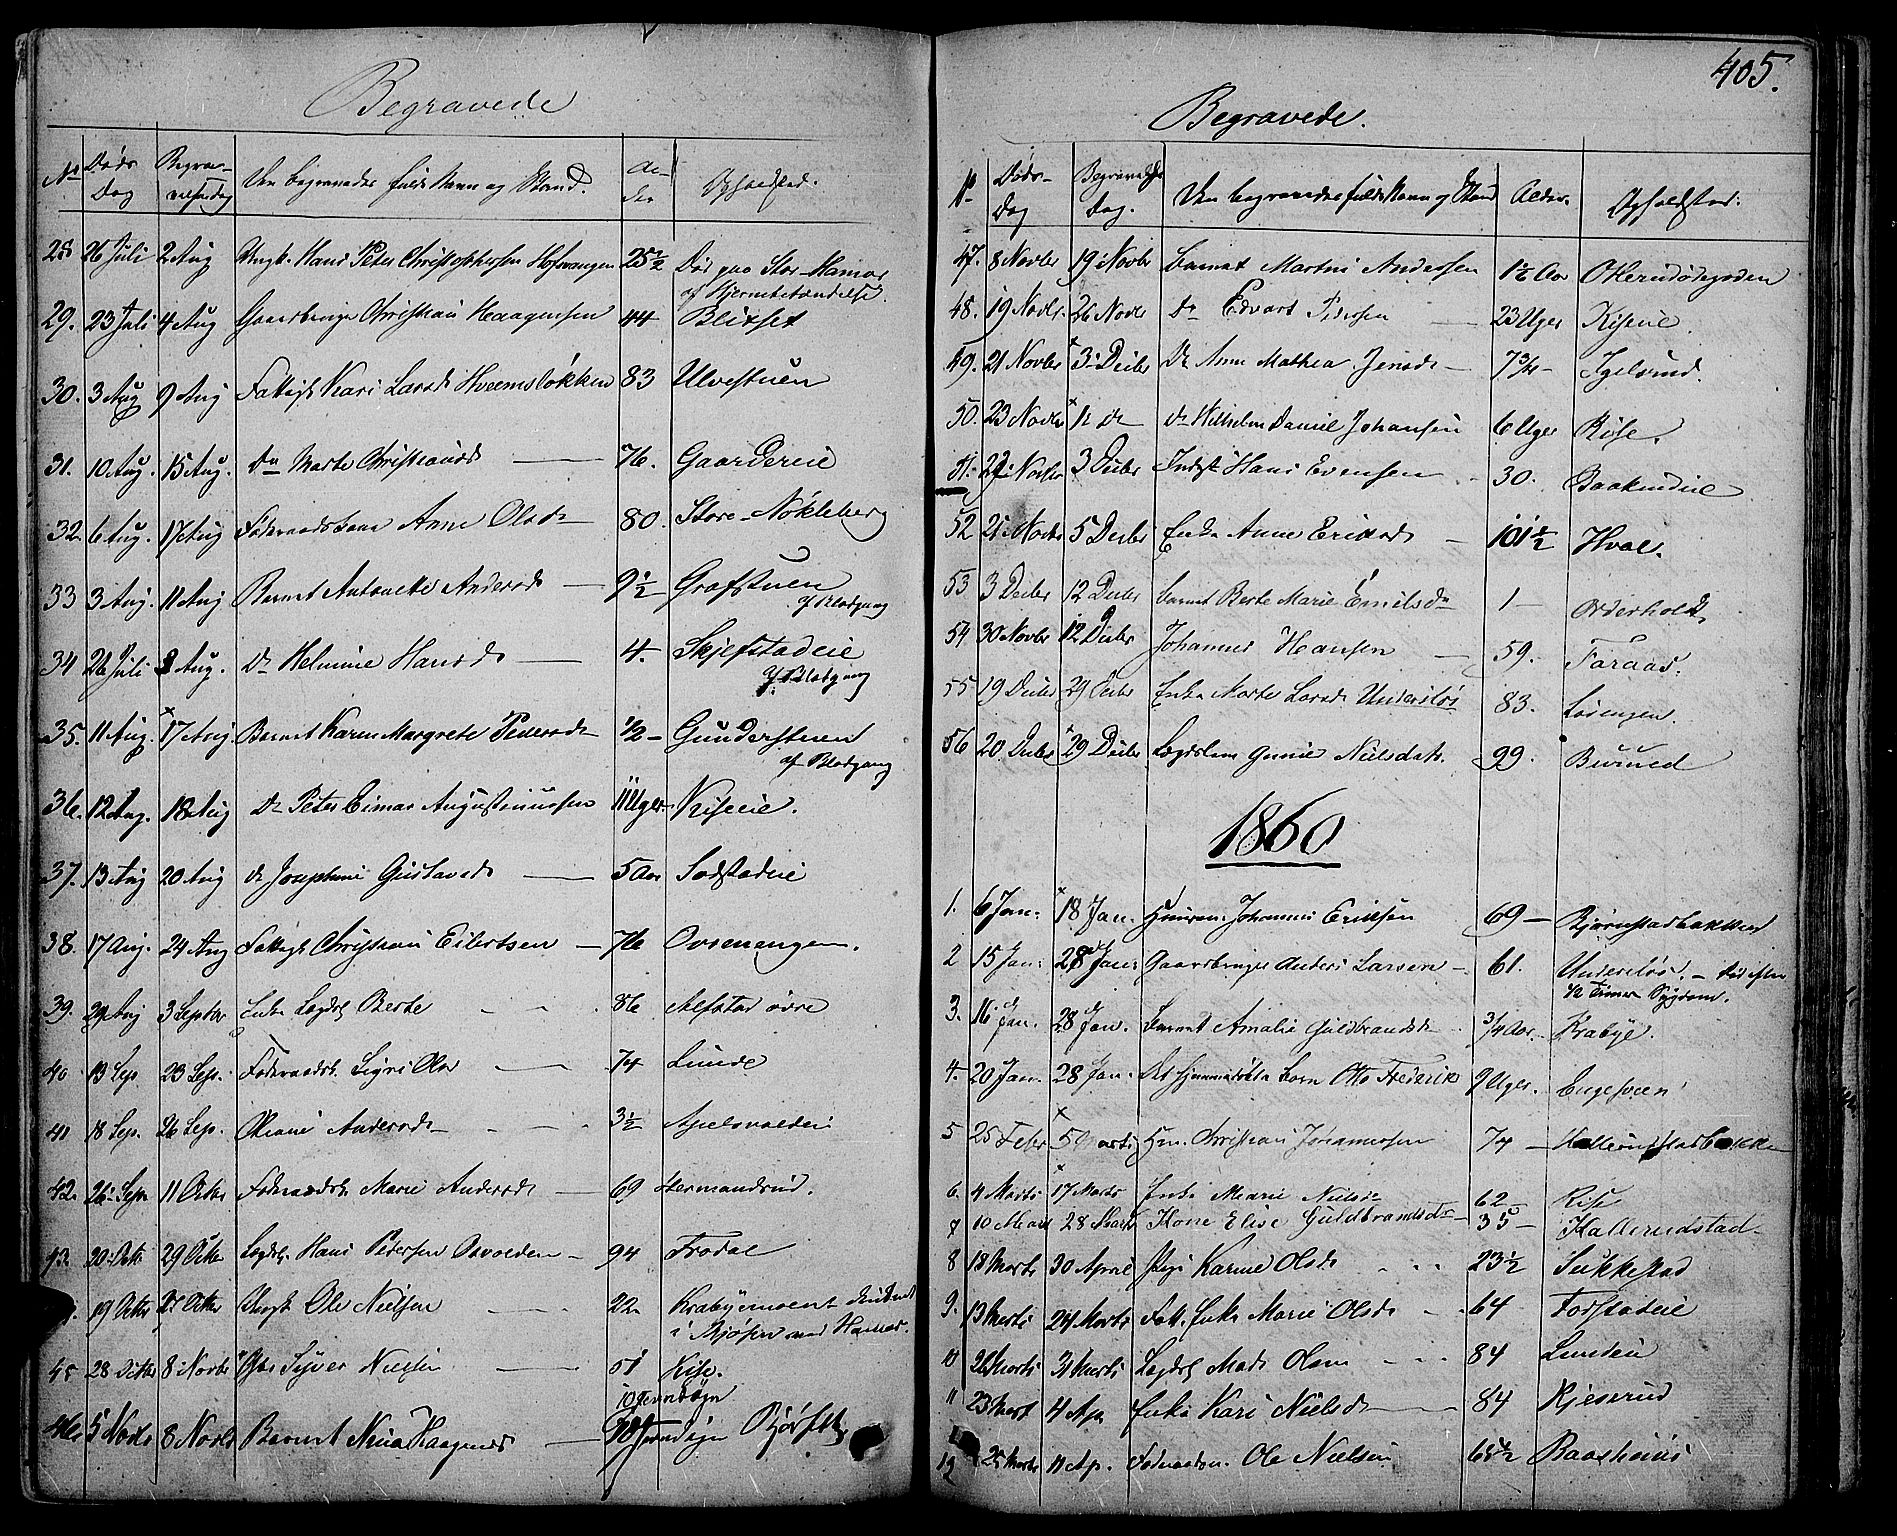 405.
Begravede
No Døds Dag Begravelsesdag Den begravedes fulde Navn og Stand. Alder Opholdssted.
28 26 Juli 2 Aug Ungk. Hans Peter Christophersen Hofvangen 25½ Død paa Store-Hamar
af Hjernebetændelse.
29. 23 Juli 4 Aug Gaardbruger Christian Haagensen 44 Blixset
30. 3 Aug 9 Aug Fattigl. Kari Larsd. Hveemsløkken 83 Ulvestuen
31. 10 Aug. 15 Aug. Do Marte Christiansd. — 76. Gaardereie
32. 6 Aug. 17 Aug Føderaadskone Anne Olsd. 80. Store-Nøkleberg
33 3 Aug. 11 Aug Barnet Antonette Andersd. — 9½ Grafstuen
af Blodgang
34 26 Juli 8 Aug. Do Helmine Hansd. — 4. Skjefstadeie
af Blodgang
35. 11 Aug. 17 Aug Barnet Karen Margrete Pedersd. ½ — Gunderstuen
af Blodgang
36. 12 Aug. 18 Aug Do Peter Eimar Augustinussen 11 Uger Kiseeie.
37. 13 Aug 20 Aug do Josephine Gustavsd. — 5 Aar Sodstadeie
38. 17 Aug. 24 Aug Fattigl. Christian Eilertsen — 76 Ovsenengen.
39. 29 Aug 3 Septbr Enke Lægdsl. Berte 86 Alfstad øvre
40 13 Sep 23 Sep. Føderaadsk. Sigri Olsd 74 Lunde
41 18 Sep. 26 Sep. Oliane Andersd. 3½ Apelsvoldei
42. 26 Sepr 11 Octbr Føderaadsk. Marie Andersd. — 69 Hermandsrud.
43. 20 Octr 29 Octr Lægdsl. Hans Pedersen Osvolden — 94 Frodal
19 Octbr Octbr Ungk. Ole Nielsen 22 Krabymoent druknet
i Mjøsen ved Hamar.
45 28 Octbr 8 Novbr Syver Nielsen — 51 Kise.
10 Jevndøgn
46. 5 Novbr 8 Novbr Barnet Nina Haagensd. — Bjørstu
Begravede.
No Døds- Dag Begravelses Dag. Den begravedes fulde Navn og Stand Alder. Opholdsted.
47. 8 Novbr 19 Novbr Barnet Martin Andersen 1½ Aar Okerudødegaden
48. 19 Novbr. 26 Novbr Do Edvart Pedersen — 23 Uger Kiseeie.
49. 21 Novbr 3 Decbr Do Anne Mathea Jensd. — 7¾ — Igelsrud.
50. 23 Novbr 11 do Do Wilhelm Daniel Johansen 6 Uger Kise.
51. 27 Novbr 3 Decbr Inderst Hans Evensen 30. Baakindeie
52 21 Novbr 5 Decbr Enke Anne Eriksd. — 101½ Hval.
53 3 Decbr 12 Decbr Barnet Berte Marie Emilsdr 1 — Orderholdt
54 30 Novbr 12 Decbr Johannes Hansen — 59. Faraas.
55 19 Decbr 29 Decbr Enke Marte Larsd. Undersløs 83. Løvengen.
56 20 Decbr 29 Decbr Lægdslem Gunnil Nielsdatr. 99. Bururud
1860
1. 6 Jan. 18 Jan. Huusm. Johannes Eriksen 69 — Bjørnstadbakken
2 15 Jan: 28 Jan: Gaardbruger Anders Larsen — 61. Undersløs. — Død efter
½ Times Sygdom.
3. 16 Jan. 28 Jan. Barnet Amalie Guldbrandsdr ¾ Aar. Krabye.
4. 20 Jan. 28 Jan. Det hjemmedøbte Barn Otto Frederik 9 Uger. Engesveen
5 25 Febr 5 Marts Hm. Christian Johannessen 74 — Hallerudstadbakke
6. 4 Marts 17 Marts Enke Marie Nielsdr 62 — Kise
7 10 Marts 28 Marts Kone Elise Guldbrandsdr — 35 — Hallerudstad
8 18 Marts 30 April Pige Karine Olsd. 23½ Sukkestad
9. 13 Marts 24 Marts Fatt. Enke Marie Olsd. 64 Forstadeie
10 26 Marts 31 Marts Lægdsl. Mads Olsen 84 Lundei
11 23 Mart 4 Ap Enke Kari Nielsd. — 84 Kjeserud
12 25 Marts 11 Ap. Føderaadsm. Ole Nielsen 65½ Baashuus